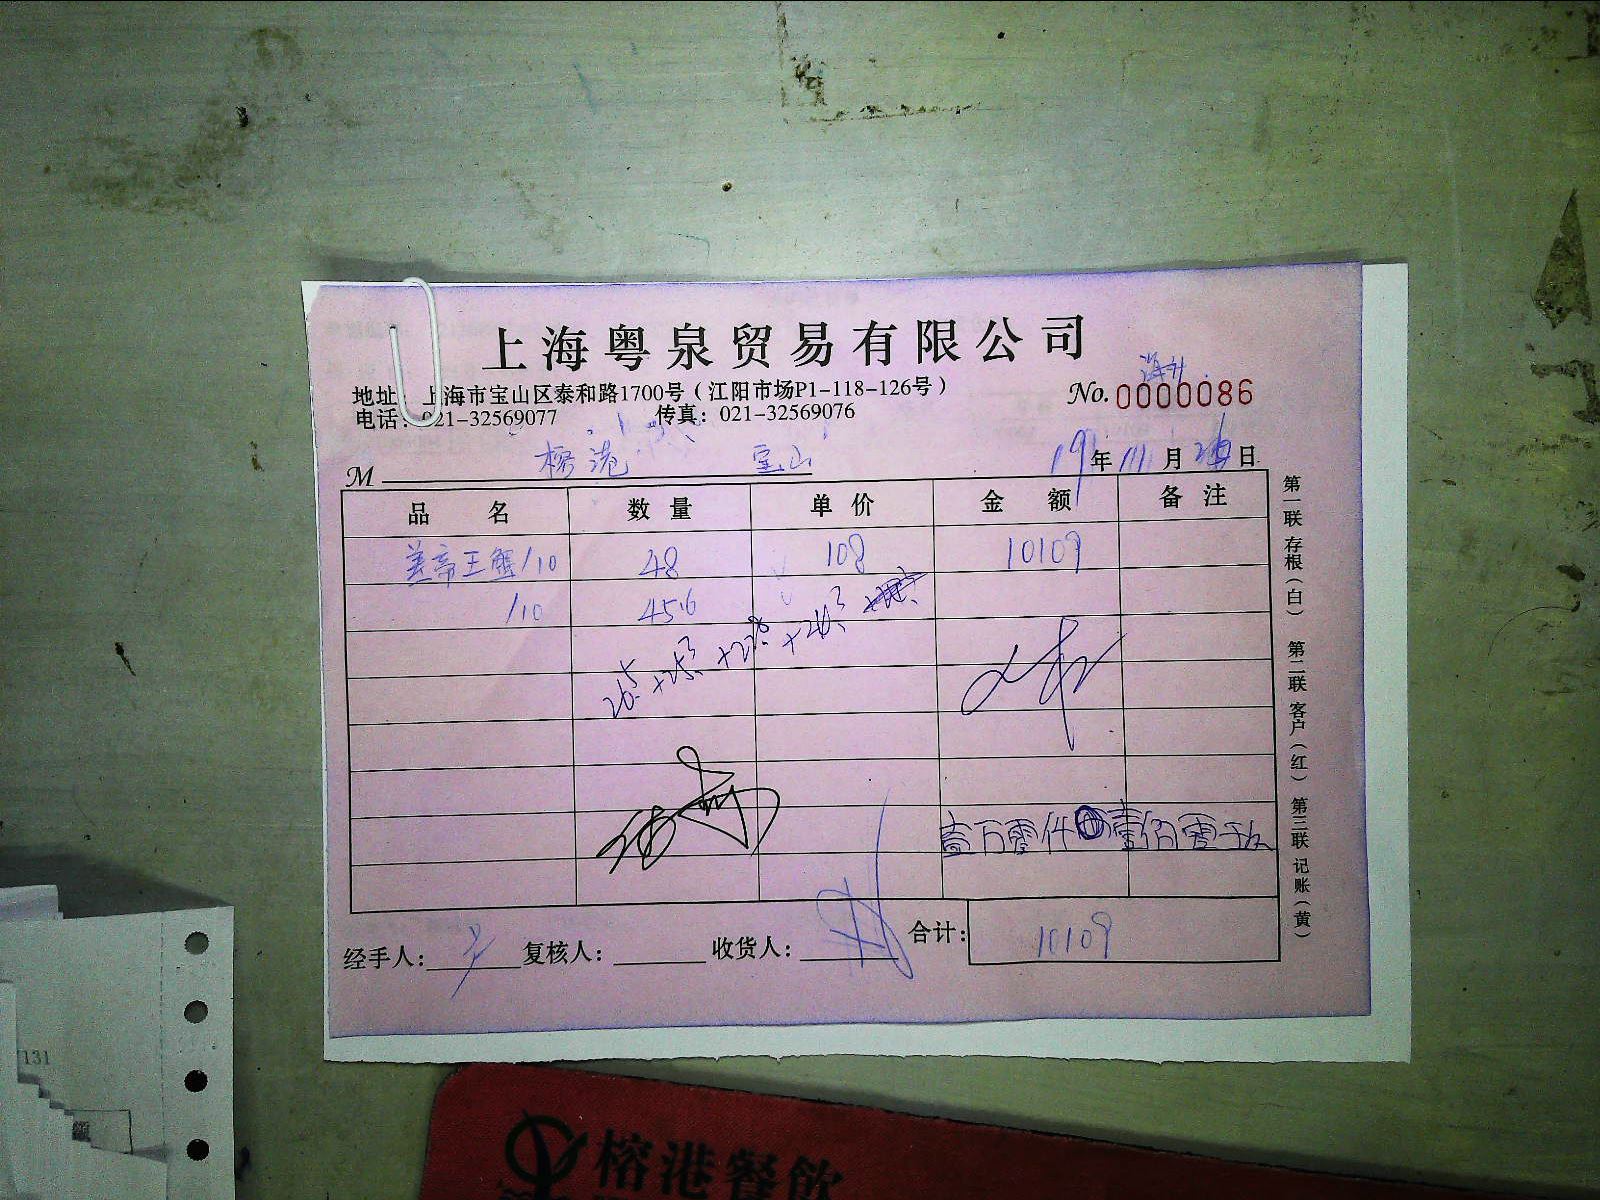 上海粤泉贸易有限公司
地址：上海市宝山区泰和路1700号（江阳市场P1-118-126号）
No. 0000086
电话：021-32569077 传真：021-32569076
M 榕港 宝山
19年11月26日
品名 数量 单价 金额 备注
帝王蟹/10 48 108 10109
/10 45.6
26.5+25.3+ +
壹万零仟壹佰零
经手人： 复核人： 收货人： 合计：10109
第一联 存根（白） 第二联 客户（红） 第三联 记账（黄）
131
榕港餐飲